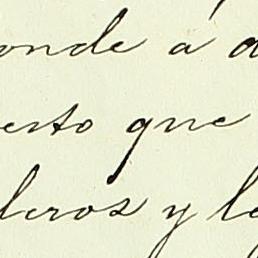 onde á a
esto que
leros y le